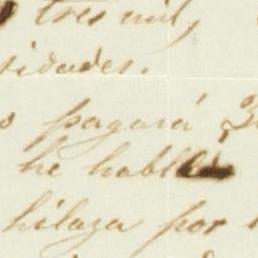 tres mil,
sidades.
o pagará
he habl
hilaza por